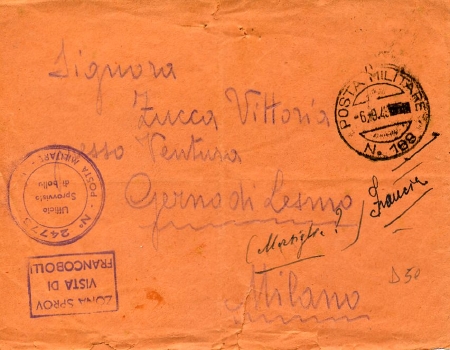 Signora
Zucca Vittoria
presso Ventura
Gerno di Lesmo
Milano
POSTA MILITARE
N. 188
POSTA MILITARE
Ufficio
Sprovvisto
di bollo
N° 2477
ZONA SPROV
VISTA DI
FRANCOBOLLI
(Marsiglia?)
Francia
D 50